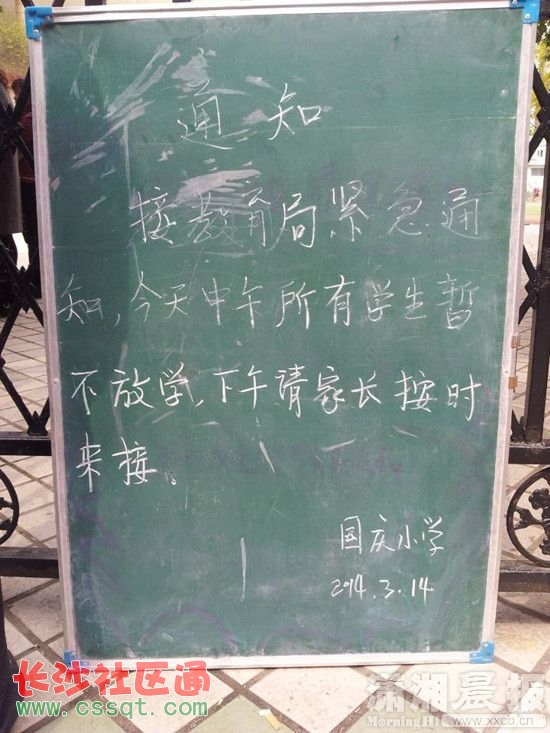 通知
接教育局紧急通
知,今天中午所有学生暂
不放学,下午请家长按时
来接。
国庆小学
2014.3.14
长沙社区通
www.cssqt.com
潇湘晨报
www.xxcb.cn